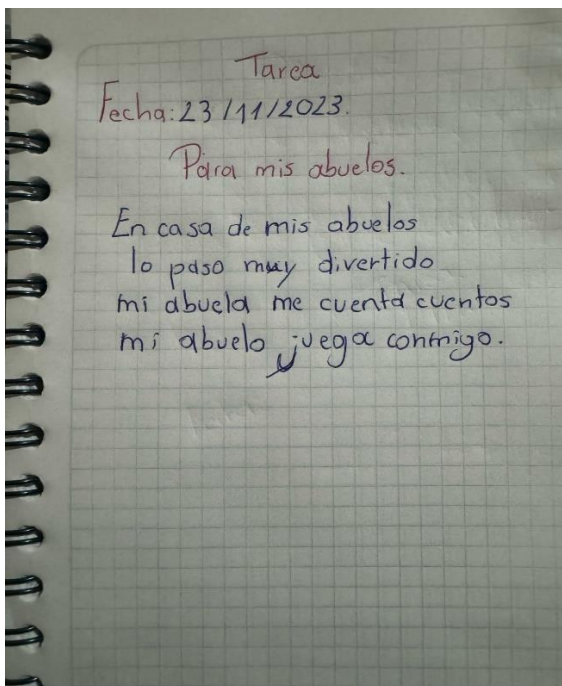 Tarea
Fecha: 23/11/2023.
Para mis abuelos.
En casa de mis abuelos
lo paso muy divertido
mi abuela me cuenta cuentos
mi abuelo juega conmigo.